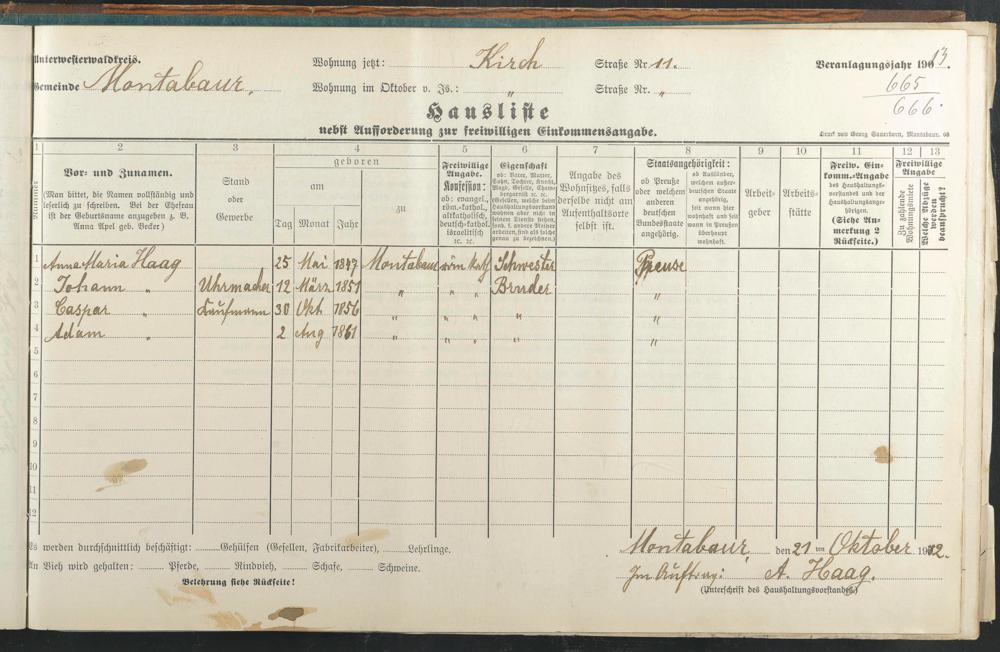 Unterwesterwaldkreis. Wohnung jetzt: Kirch Straße Nr. 11. Veranlagungsjahr 1903.
Gemeinde Montabaur. Wohnung im Oktober v. Js.: " Straße Nr. "
665
666.
Hausliste
nebst Aufforderung zur freiwilligen Einkommensangabe.
Druck von Georg Sauerborn, Montabaur. 03
1 2 3 4 5 6 7 8 9 10 11 12 13
Nummer
Vor- und Zunamen.
(Man bittet, die Namen vollständig und
leserlich zu schreiben. Bei der Ehefrau
ist der Geburtsname anzugeben z. B.
Anna Apel geb. Becker)
Stand
oder
Gewerbe
geboren
am
Tag Monat Jahr
zu
Freiwillige
Angabe.
Konfession:
ob: evangel.,
röm.-kathol.,
altkatholisch,
deutsch-kathol.
israelitisch
ꝛc. ꝛc.
Eigenschaft
ob: Vater, Mutter,
Sohn, Tochter, Knecht,
Magd, Geselle,
Angabe des
Wohnsitzes, falls
derselbe nicht am
Aufenthaltsorte
selbst ist.
Staatsangehörigkeit:
ob Preuße
oder welchem
anderen
deutschen
Bundesstaate
angehörig.
ob Ausländer,
welchem außer-
deutschen Staate
angehörig,
seit wann hier
wohnhaft und seit
wann in Preußen
überhaupt
wohnhaft.
Arbeit-
geber
Arbeits-
stätte
Freiw. Ein-
komm.-Angabe
des Haushaltungs-
vorstandes und der
Haushaltungsange-
hörigen.
(Siehe An-
merkung 2
Rückseite.)
Freiwillige
Angabe
Zu zahlende
Wohnungsmiete
Welche Abzüge
werden
beansprucht?
1 Anna Maria Haag 25 Mai 1847 Montabaur röm kath Schwester Preuse
2 Johann " Uhrmacher 12 März 1851 " " " Bruder "
3 Caspar " Kaufmann 30 Okt 1856 " " " " "
4 Adam " 2 Aug 1861 " " " " "
5
6
7
8
9
10
11
12
Es werden durchschnittlich beschäftigt: Gehülfen (Gesellen, Fabrikarbeiter), Lehrlinge.
An Vieh wird gehalten: Pferde, Rindvieh, Schafe, Schweine.
Belehrung siehe Rückseite!
Montabaur, den 21ten Oktober 1902.
Im Auftrag: A. Haag.
(Unterschrift des Haushaltungsvorstandes.)